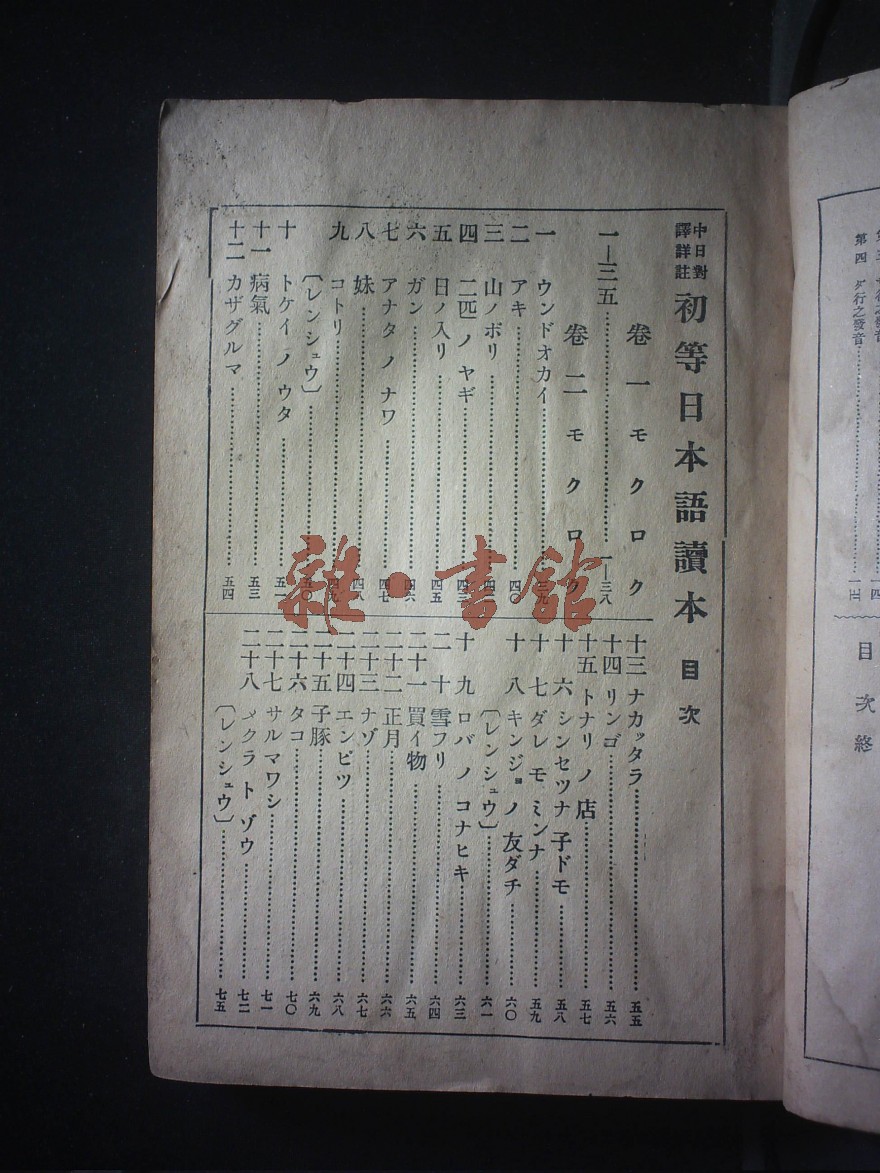 中日對
譯詳註
初等日本語讀本 目次
卷一 モクロク
一—三五 一—三八
卷二 モクロク
一 ウンドオカイ 三九
二 アキ 四〇
三 山ノボリ 四
四 二匹ノヤギ 四
五 日ノ入リ 四五
六 ガン 四六
七 アナタノナワ 四七
八 妹 四八
九 コトリ 四九
〔レンシュウ〕 五〇
十 トケイノウタ 五一
十一 病氣 五三
十二 カザグルマ 五四
十三 ナカッタラ 五五
十四 リンゴ 五六
十五 トナリノ店 五七
十六 シンセツナ子ドモ 五八
十七 ダレモミンナ 五九
十八 キンジョノ友ダチ 六〇
〔レンシュウ〕 六一
十九 ロバノコナヒキ 六三
二十 雪フリ 六四
二十一 買イ物 六五
二十二 正月 六六
二十三 ナゾ 六七
二十四 エンピツ 六八
二十五 子豚 六九
二十六 タコ 七〇
二十七 サルマワシ 七一
二十八 メクラトゾウ 七二
〔レンシュウ〕 七五
雜·書館
第四 ダ行之發音
目次終